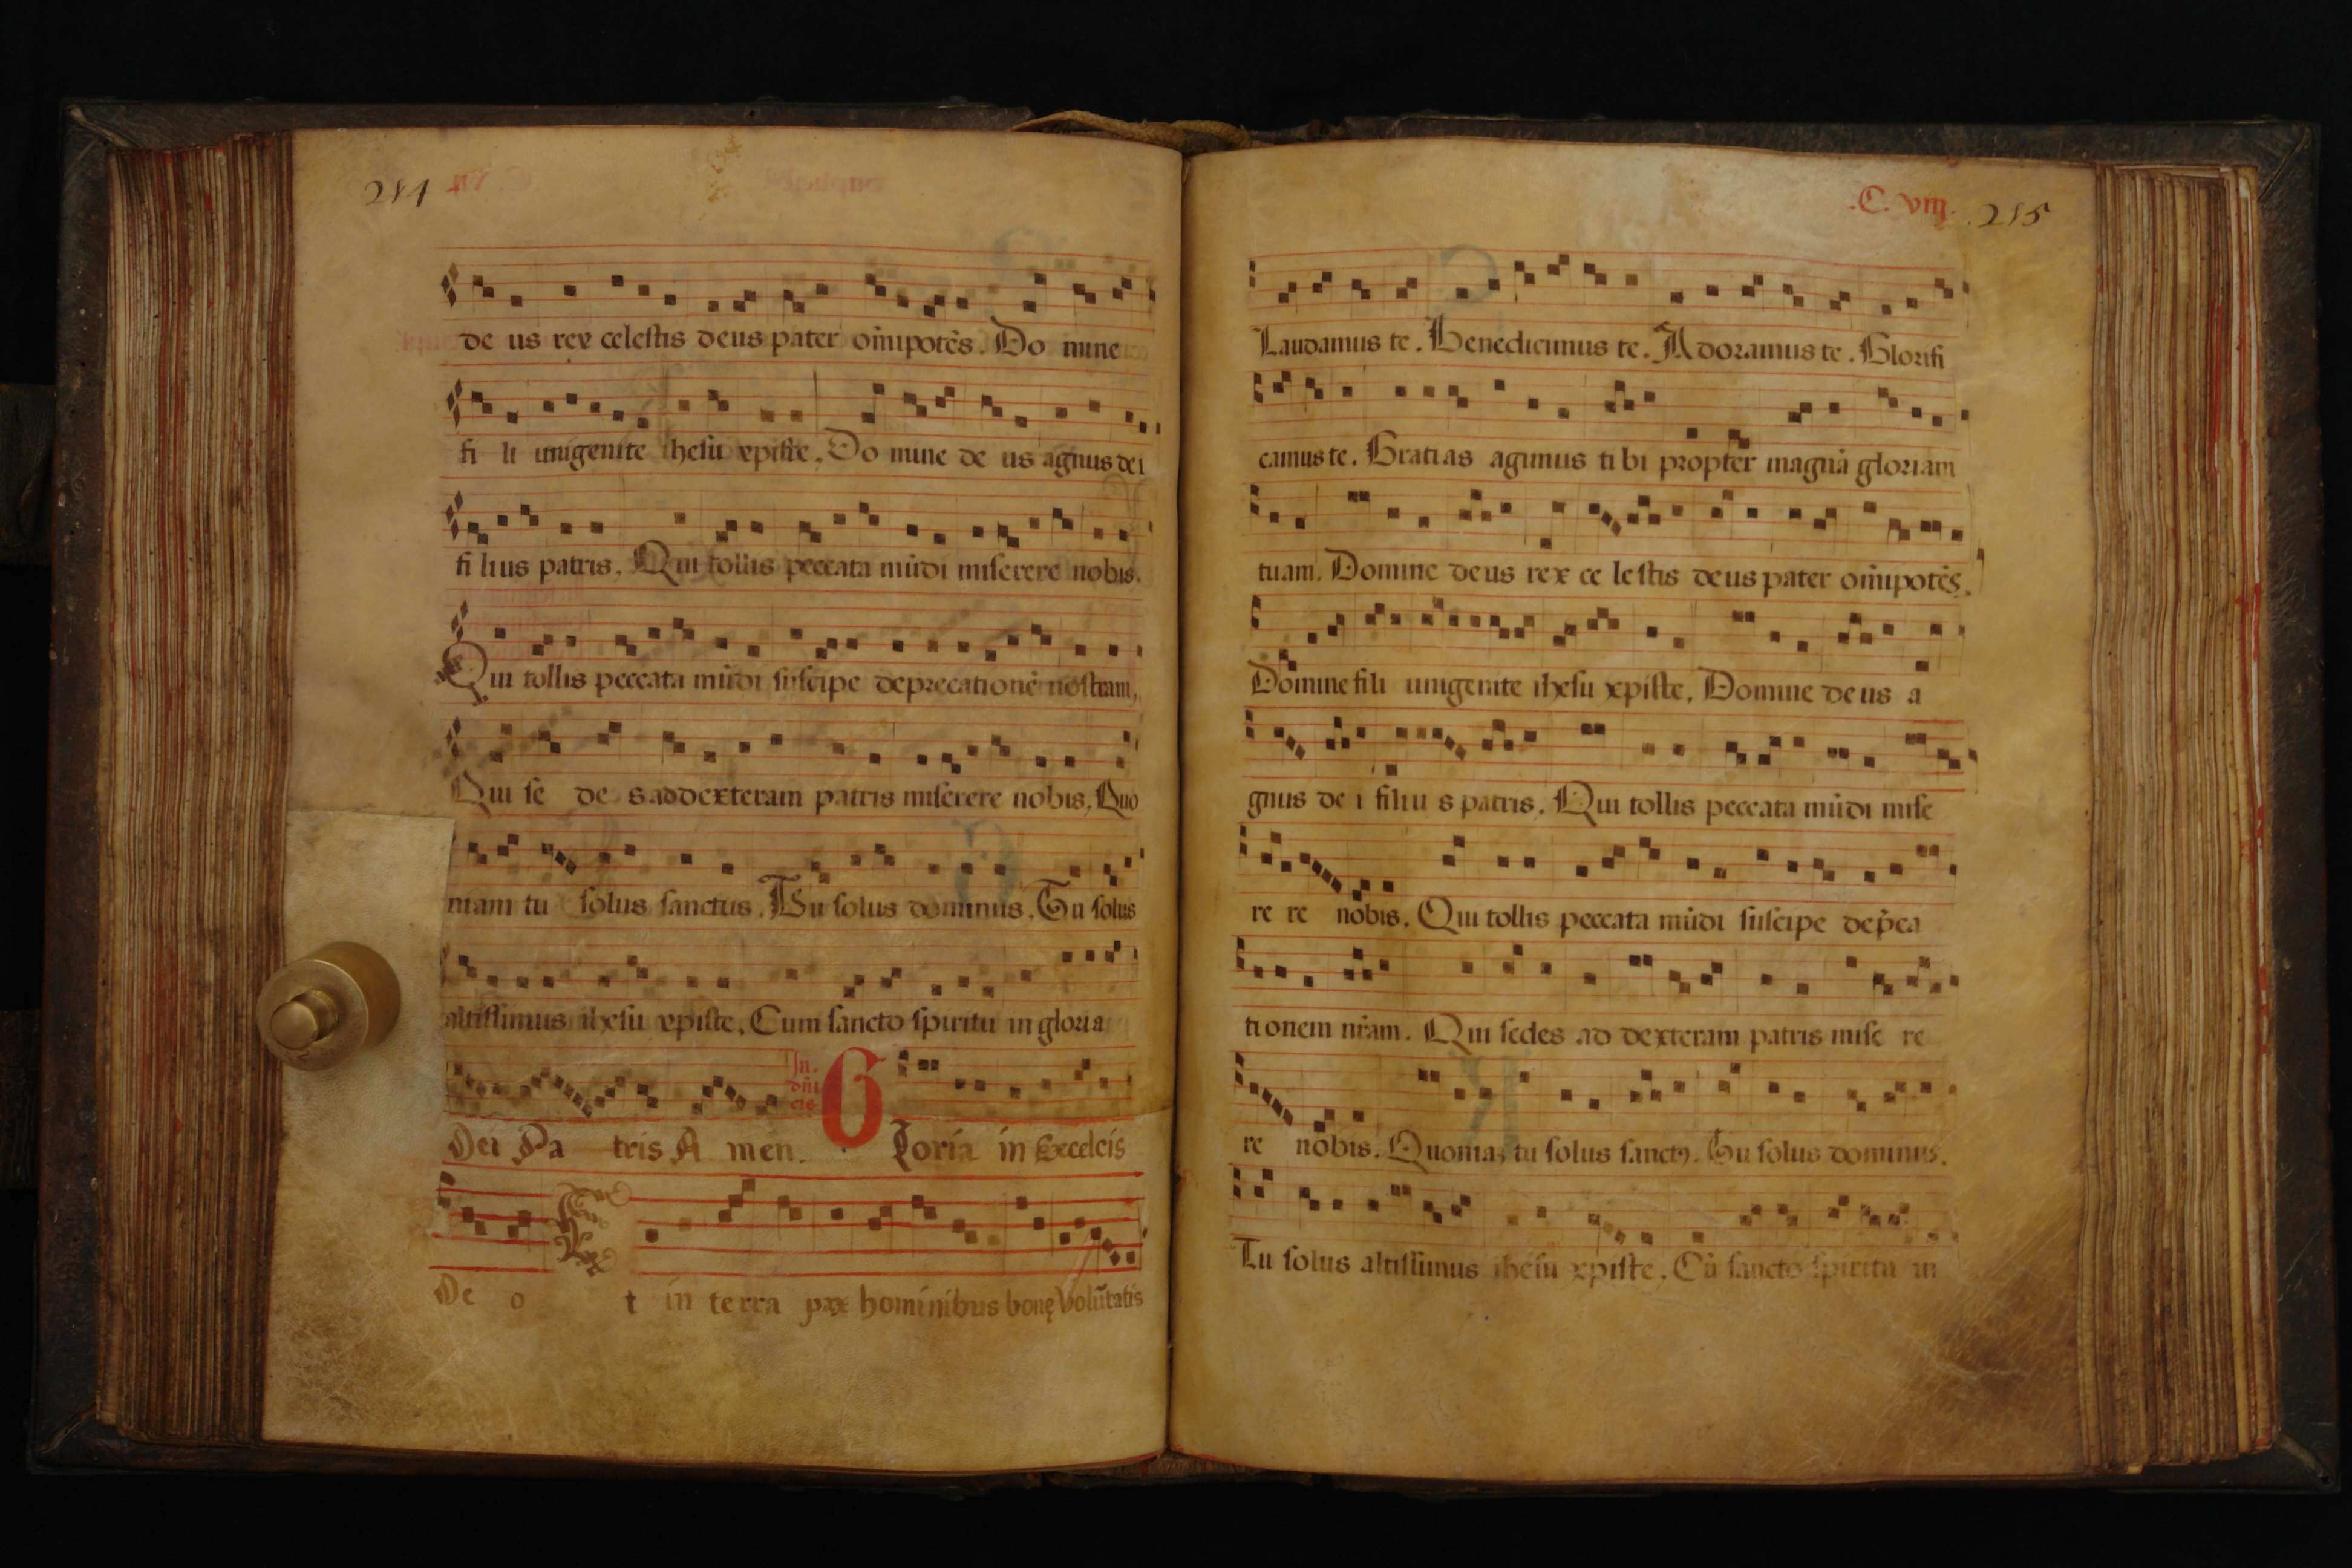 214
de us rex celestis deus pater oīnipotēs. Do mine
fi li unigenite ihesu xpiste. Do mine de us agnus dei
fi lius patris. Qui tollis peccata mūdi miserere nobis.
Qui tollis peccata mūdi suscipe deprecationē nostram.
Qui se de s ad dexteram patris miserere nobis. Quo
niam tu solus sanctus. Tu solus dominus. Tu solus
altissimus ihesu xpiste. Cum sancto spiritu in gloria
In. dn̄i cis
Dei Pa tris A men. Gloria in Excelcis
De o Et in terra pax hominibus bonę Volūtatis
.C. viii. 215
Laudamus te. Benedicimus te. Adoramus te. Glorifi
camus te. Gratias agimus ti bi propter magnā gloriam
tuam. Domine deus rex ce lestis deus pater oīnipotēs.
Domine fili unigenite ihesu xpiste. Domine de us a
gnus de i filiu s patris. Qui tollis peccata mūdi mise
re re nobis. Qui tollis peccata mūdi suscipe dep̄ca
tionem nr̄am. Qui sedes ad dexteram patris mise re
re nobis. Quoniaȝ tu solus sanctꝰ. Tu solus dominus.
Tu solus altissimus ihesu xpiste. Cū sancto spiritu in